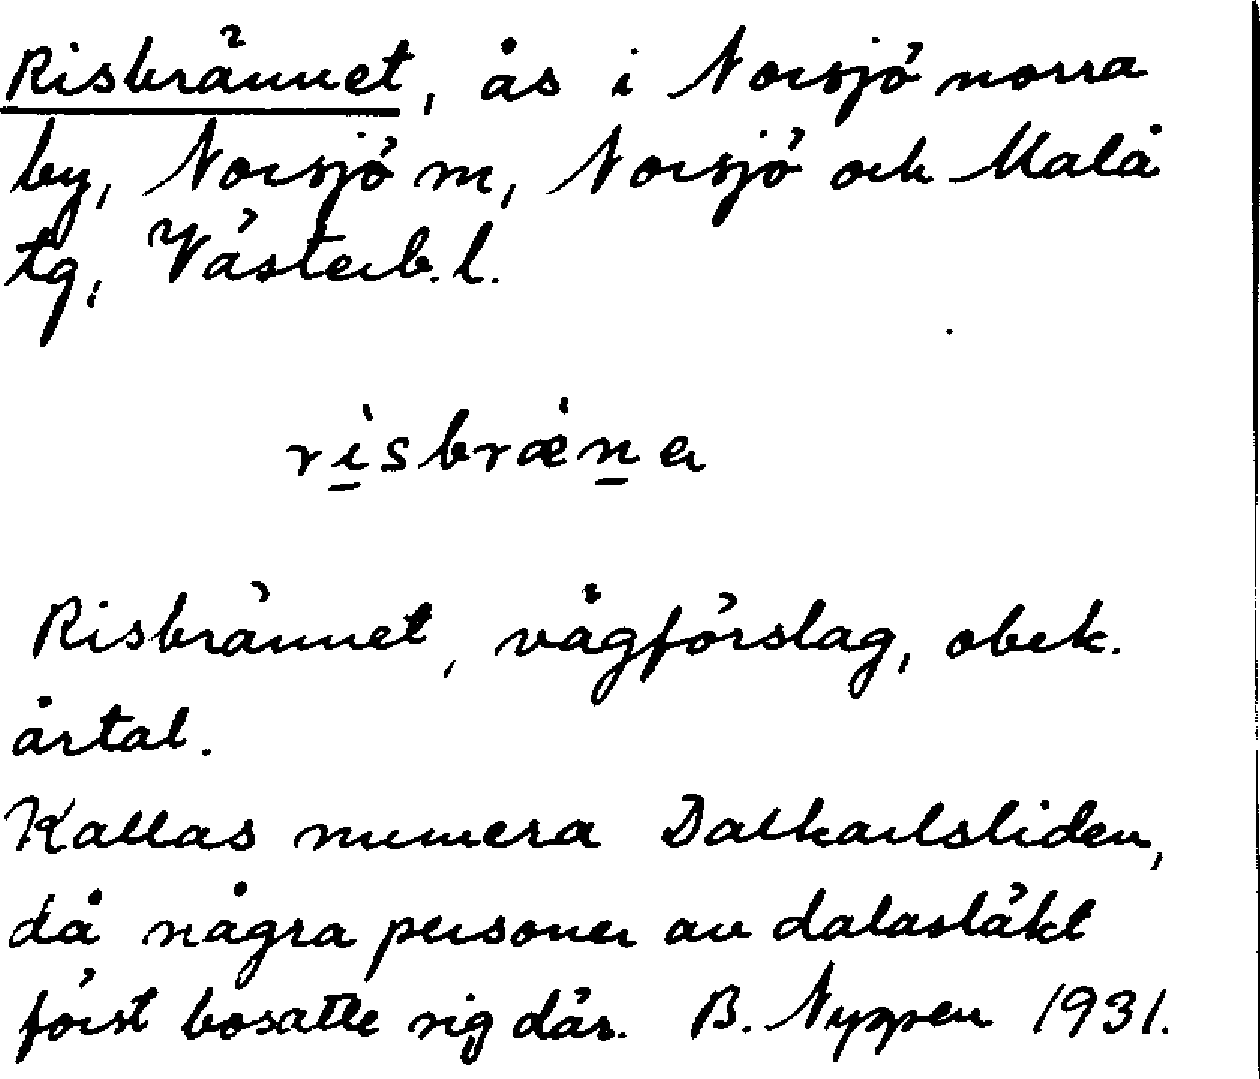 Risbrännet, ås i Norsjö norra
by, Norsjö m, Norsjö och Malå
tg, Västerb. l.
rìsbrǽna
Risbrännet, vågförslag, obek.
årtal.
Kallas numera Dalkarlsliden,
då några personer av dalasläkt
först bosatte sig där. B. Nyppen 1931.